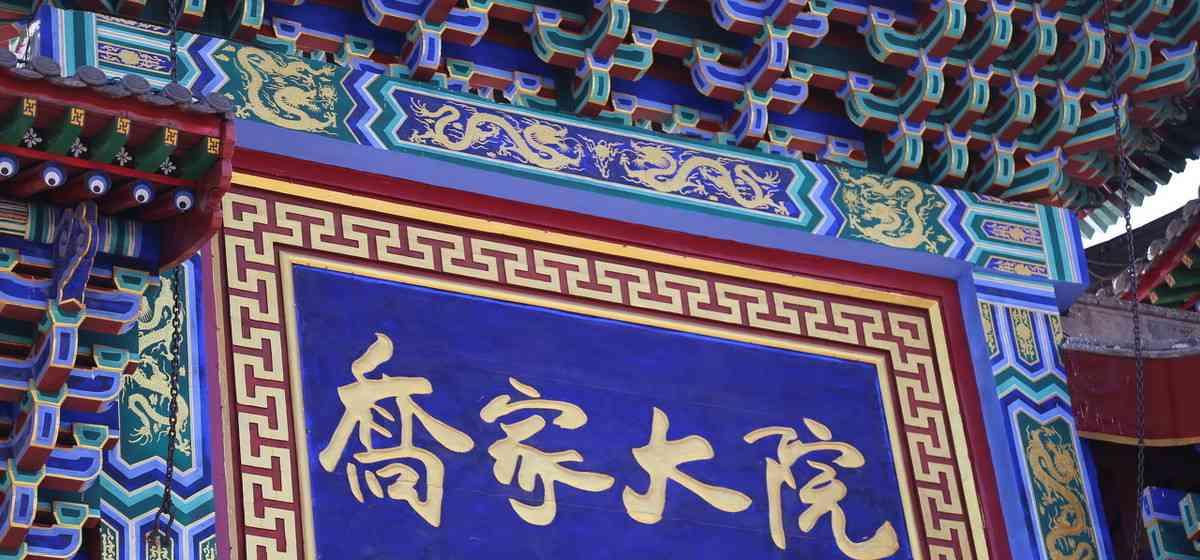 喬家大院